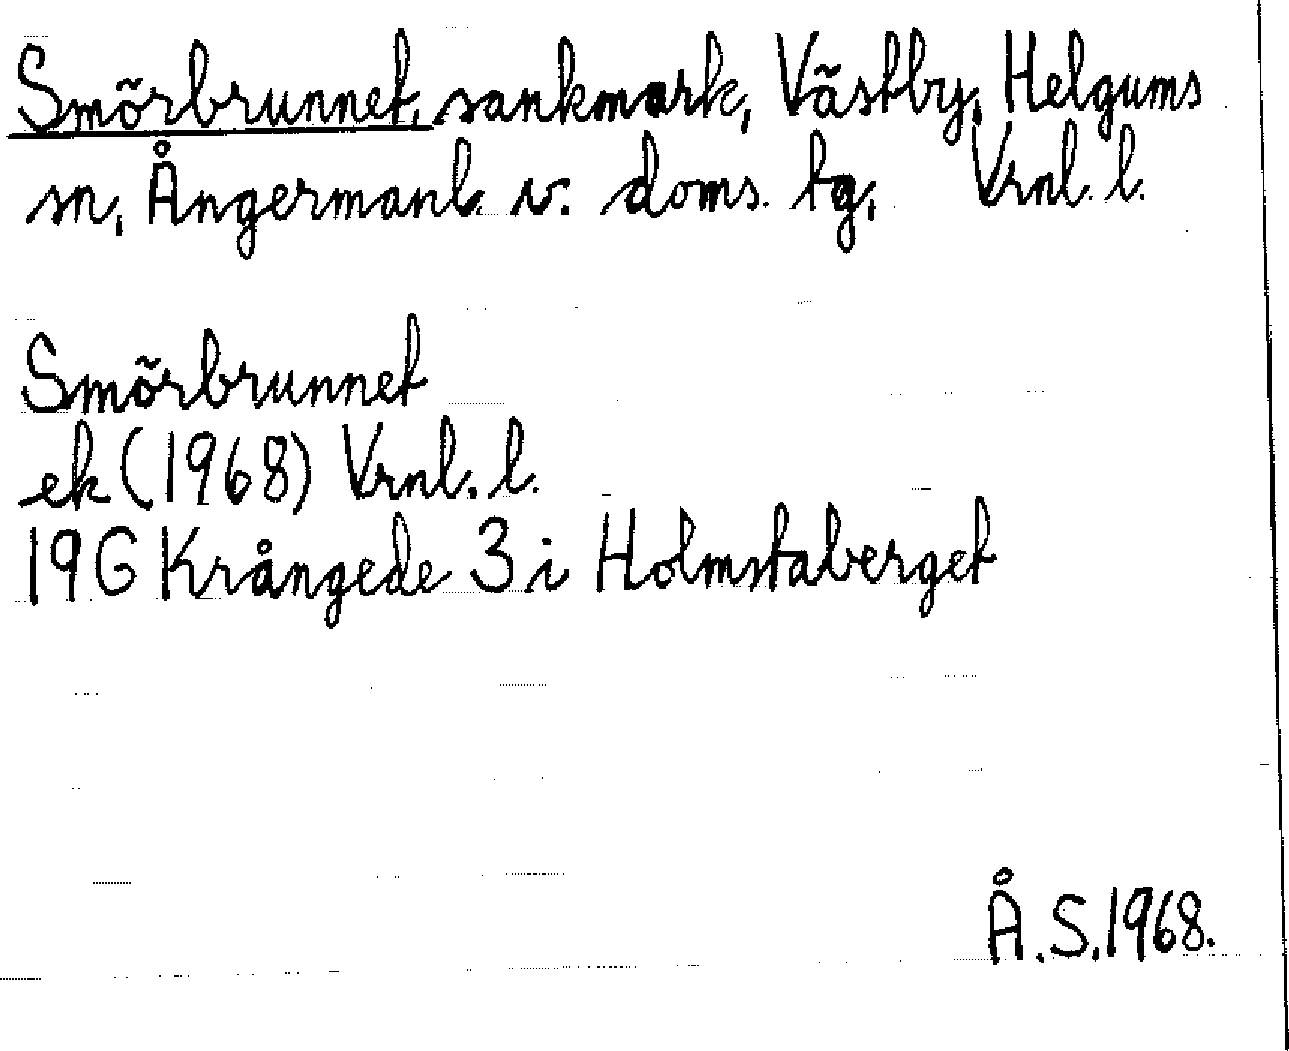 Smörbrunnet, sankmark, Västby, Helgums
sn, Ångermanl. v. doms. tg, Vrnl. l.
Smörbrunnet
ek (1968) Vrnl. l.
19G Krångede 3 i Holmstaberget
Å.S. 1968.